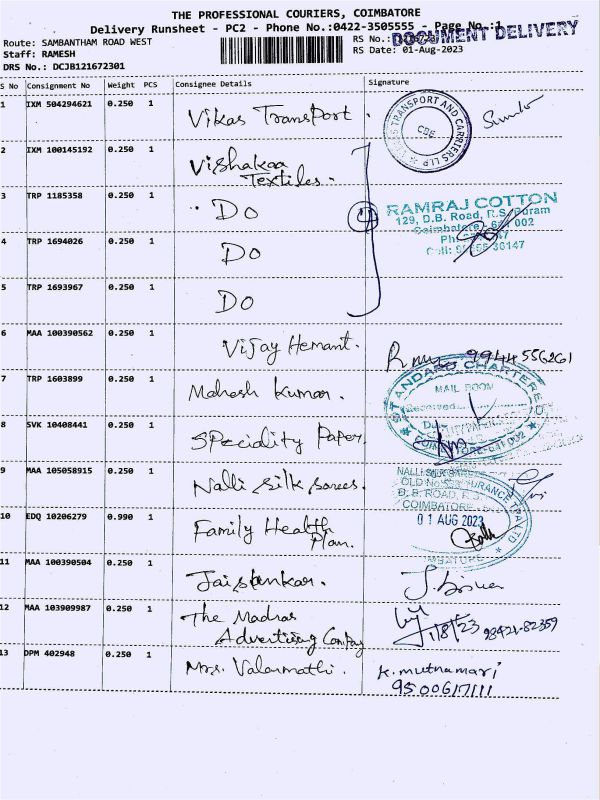 THE PROFESSIONAL COURIERS, COIMBATORE
Delivery Runsheet - PC2 - Phone No.:0422-3505555 - Page No.:1
DOCUMENT DELIVERY
Route: SAMBANTHAM ROAD WEST
RS No.:
Staff: RAMESH
RS Date: 01-Aug-2023
DRS No.: DCJB121672301
S No Consignment No Weight PCS Consignee Details Signature
1 IXM 504294621 0.250 1 Vikas Transport. TRANSPORT AND CARRIERS LLP CBE
2 IXM 100145192 0.250 1 Vishakaa
Textiles.
3 TRP 1185358 0.250 1 Do
RAMRAJ COTTON
129, D.B. Road, R.S. Puram
Coimbatore - 641 002
4 TRP 1694026 0.250 1 Do
36147
5 TRP 1693967 0.250 1 Do
6 MAA 100390562 0.250 1 Vijay Hemant. 9944556261
7 TRP 1603899 0.250 1 Mahesh Kumar.
STANDARD CHARTERED
MAIL ROOM
Received
8 SVK 10408441 0.250 1 Speciality Paper.
COIMBATORE-641 002
9 MAA 105058915 0.250 1 Nalli Silk Sarees.
NALLI SILK
OLD No.
D. B. ROAD, R.S.
COIMBATORE
10 EDQ 10206279 0.990 1 Family Health
Plan.
01 AUG 2023
11 MAA 100390504 0.250 1 Jaishankar.
12 MAA 103909987 0.250 1 The Madras
Advertising Company
1/8/23 98421-82359
13 DPM 402948 0.250 1 Mrs. Valarmathi. K. muthamari
9500617111